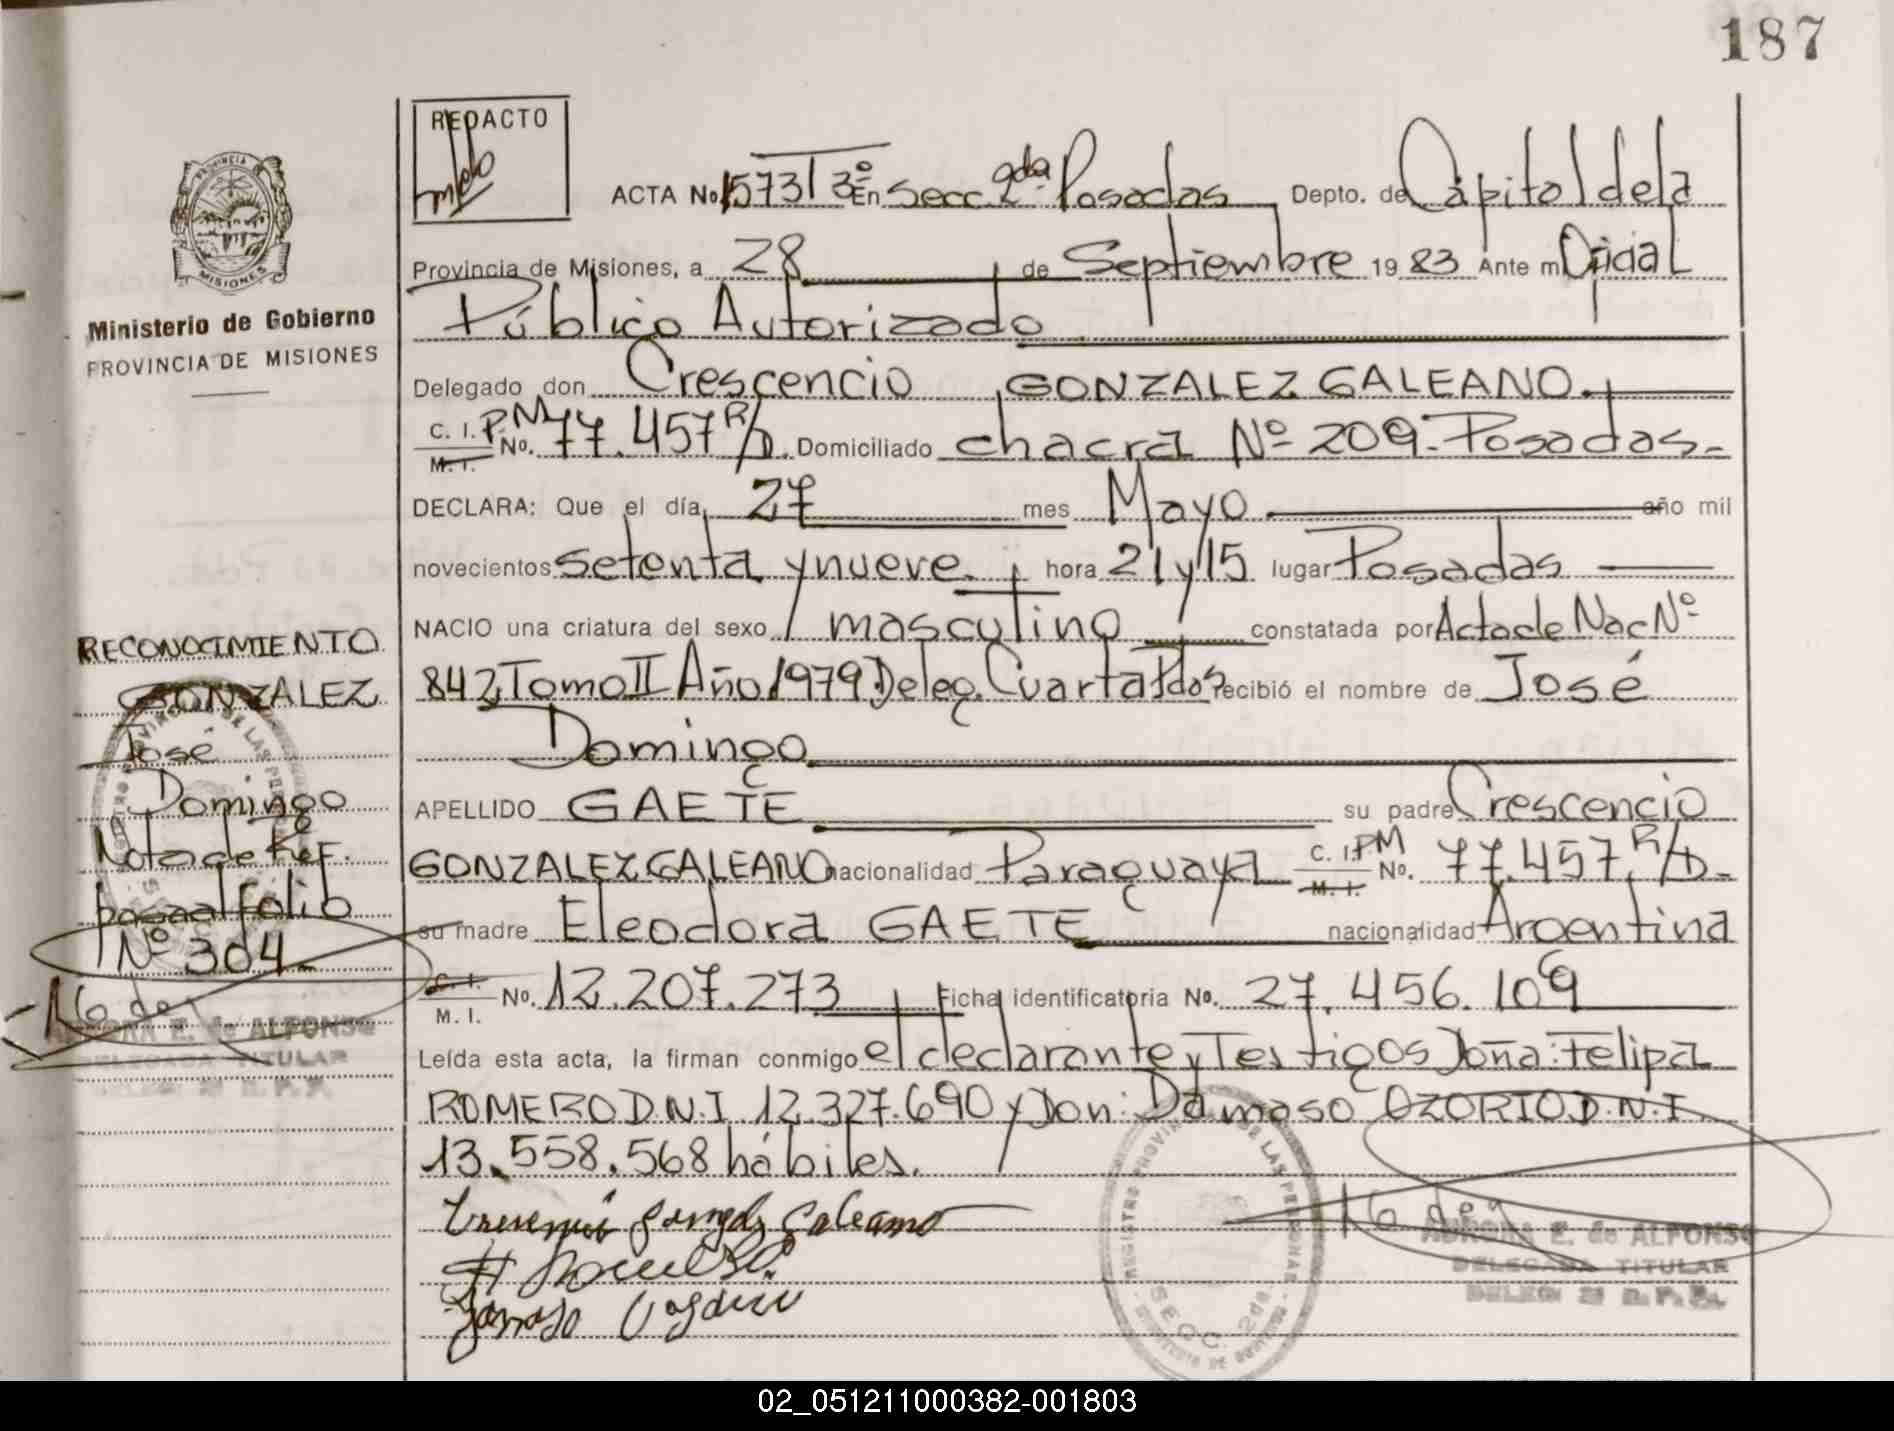 187
REDACTO
ACTA No. 1573 T 3º En Secc. 2da Posadas Depto. de Capital de la
Provincia de Misiones, a 28 de Septiembre 19 83 Ante mi Oficial
Público Autorizado
Delegado don Crescencio GONZALEZ GALEANO.
C. I. P.M. No. 77.457 R/D. Domiciliado chacra Nº 209 - Posadas.-
M. I.
DECLARA: Que el día 27 mes Mayo año mil
novecientos setenta y nueve. hora 21 y 15 lugar Posadas
NACIO una criatura del sexo masculino constatada por Acta de Nac Nº
842 Tomo II Año 1979 Deleg. Cuarta Pdas recibió el nombre de José
Domingo
APELLIDO GAETE su padre Crescencio
GONZALEZ GALEANO nacionalidad Paraguaya C. I. PM No. 77.457. R/D.-
M. I.
su madre Eleodora GAETE nacionalidad Argentina
C. I.
M. I. No. 12.207.273 Ficha identificatoria No. 27.456.109
Leída esta acta, la firman conmigo el declarante y Testigos Doña: Felipa
ROMERO D.N.I. 12.327.690 y Don: Dámaso OZORIO D.N.I.
13.558.568 hábiles.
PROVINCIA
MISIONES
Ministerio de Gobierno
PROVINCIA DE MISIONES
RECONOCIMIENTO
GONZALEZ
José
Domingo
Nota de Ref.
pasa al folio
Nº 304
AURORA E. de ALFONSO
DELEGADA TITULAR
AURORA E. de ALFONSO
DELEGADA TITULAR
REGISTRO PROVINCIAL DE LAS PERSONAS
SECC. 2da.
02_051211000382-001803